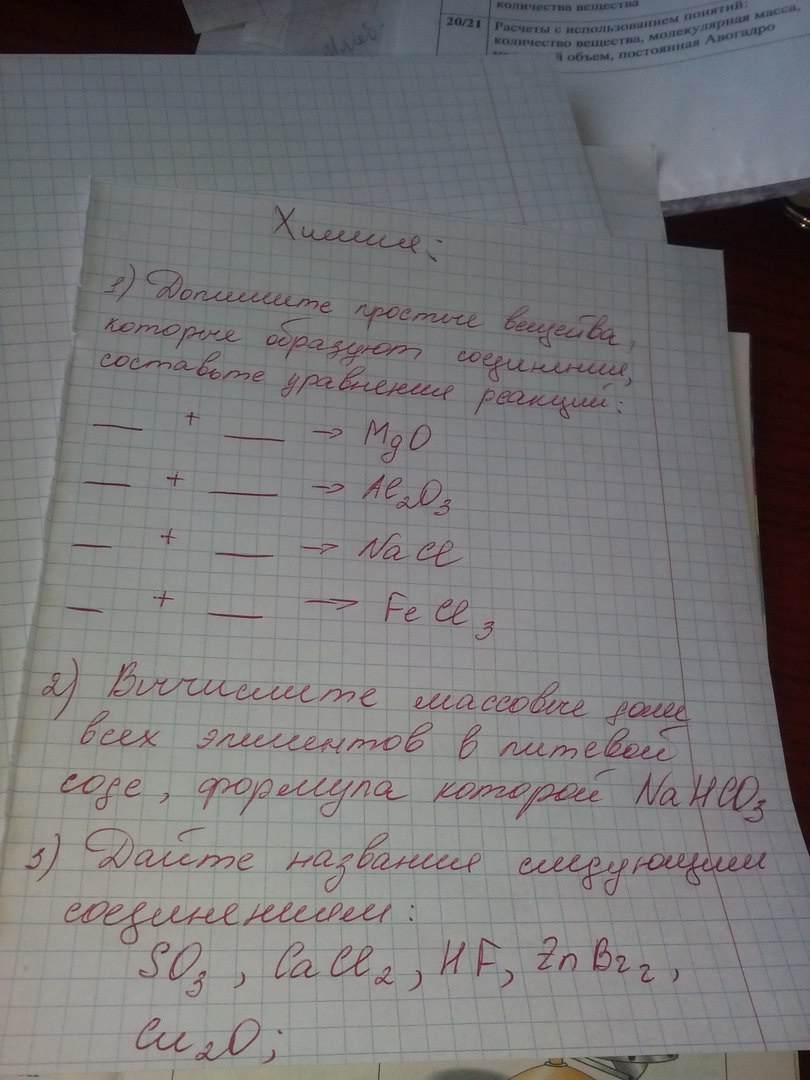 количества вещества
20/21 Расчеты с использованием понятий:
количество вещества, молекулярная масса,
объем, постоянная Авогадро
Химия:
1) Допишите простые вещества,
которые образуют соединения,
составьте уравнения реакций:
__ + __ → MgO
__ + __ → Al₂O₃
__ + __ → NaCl
__ + __ → FeCl₃
2) Вычислите массовые доли
всех элементов в питевой
соде, формула которой NaHCO₃
3) Дайте названия следующим
соединениям:
SO₃, CaCl₂, HF, ZnBr₂,
Cu₂O;